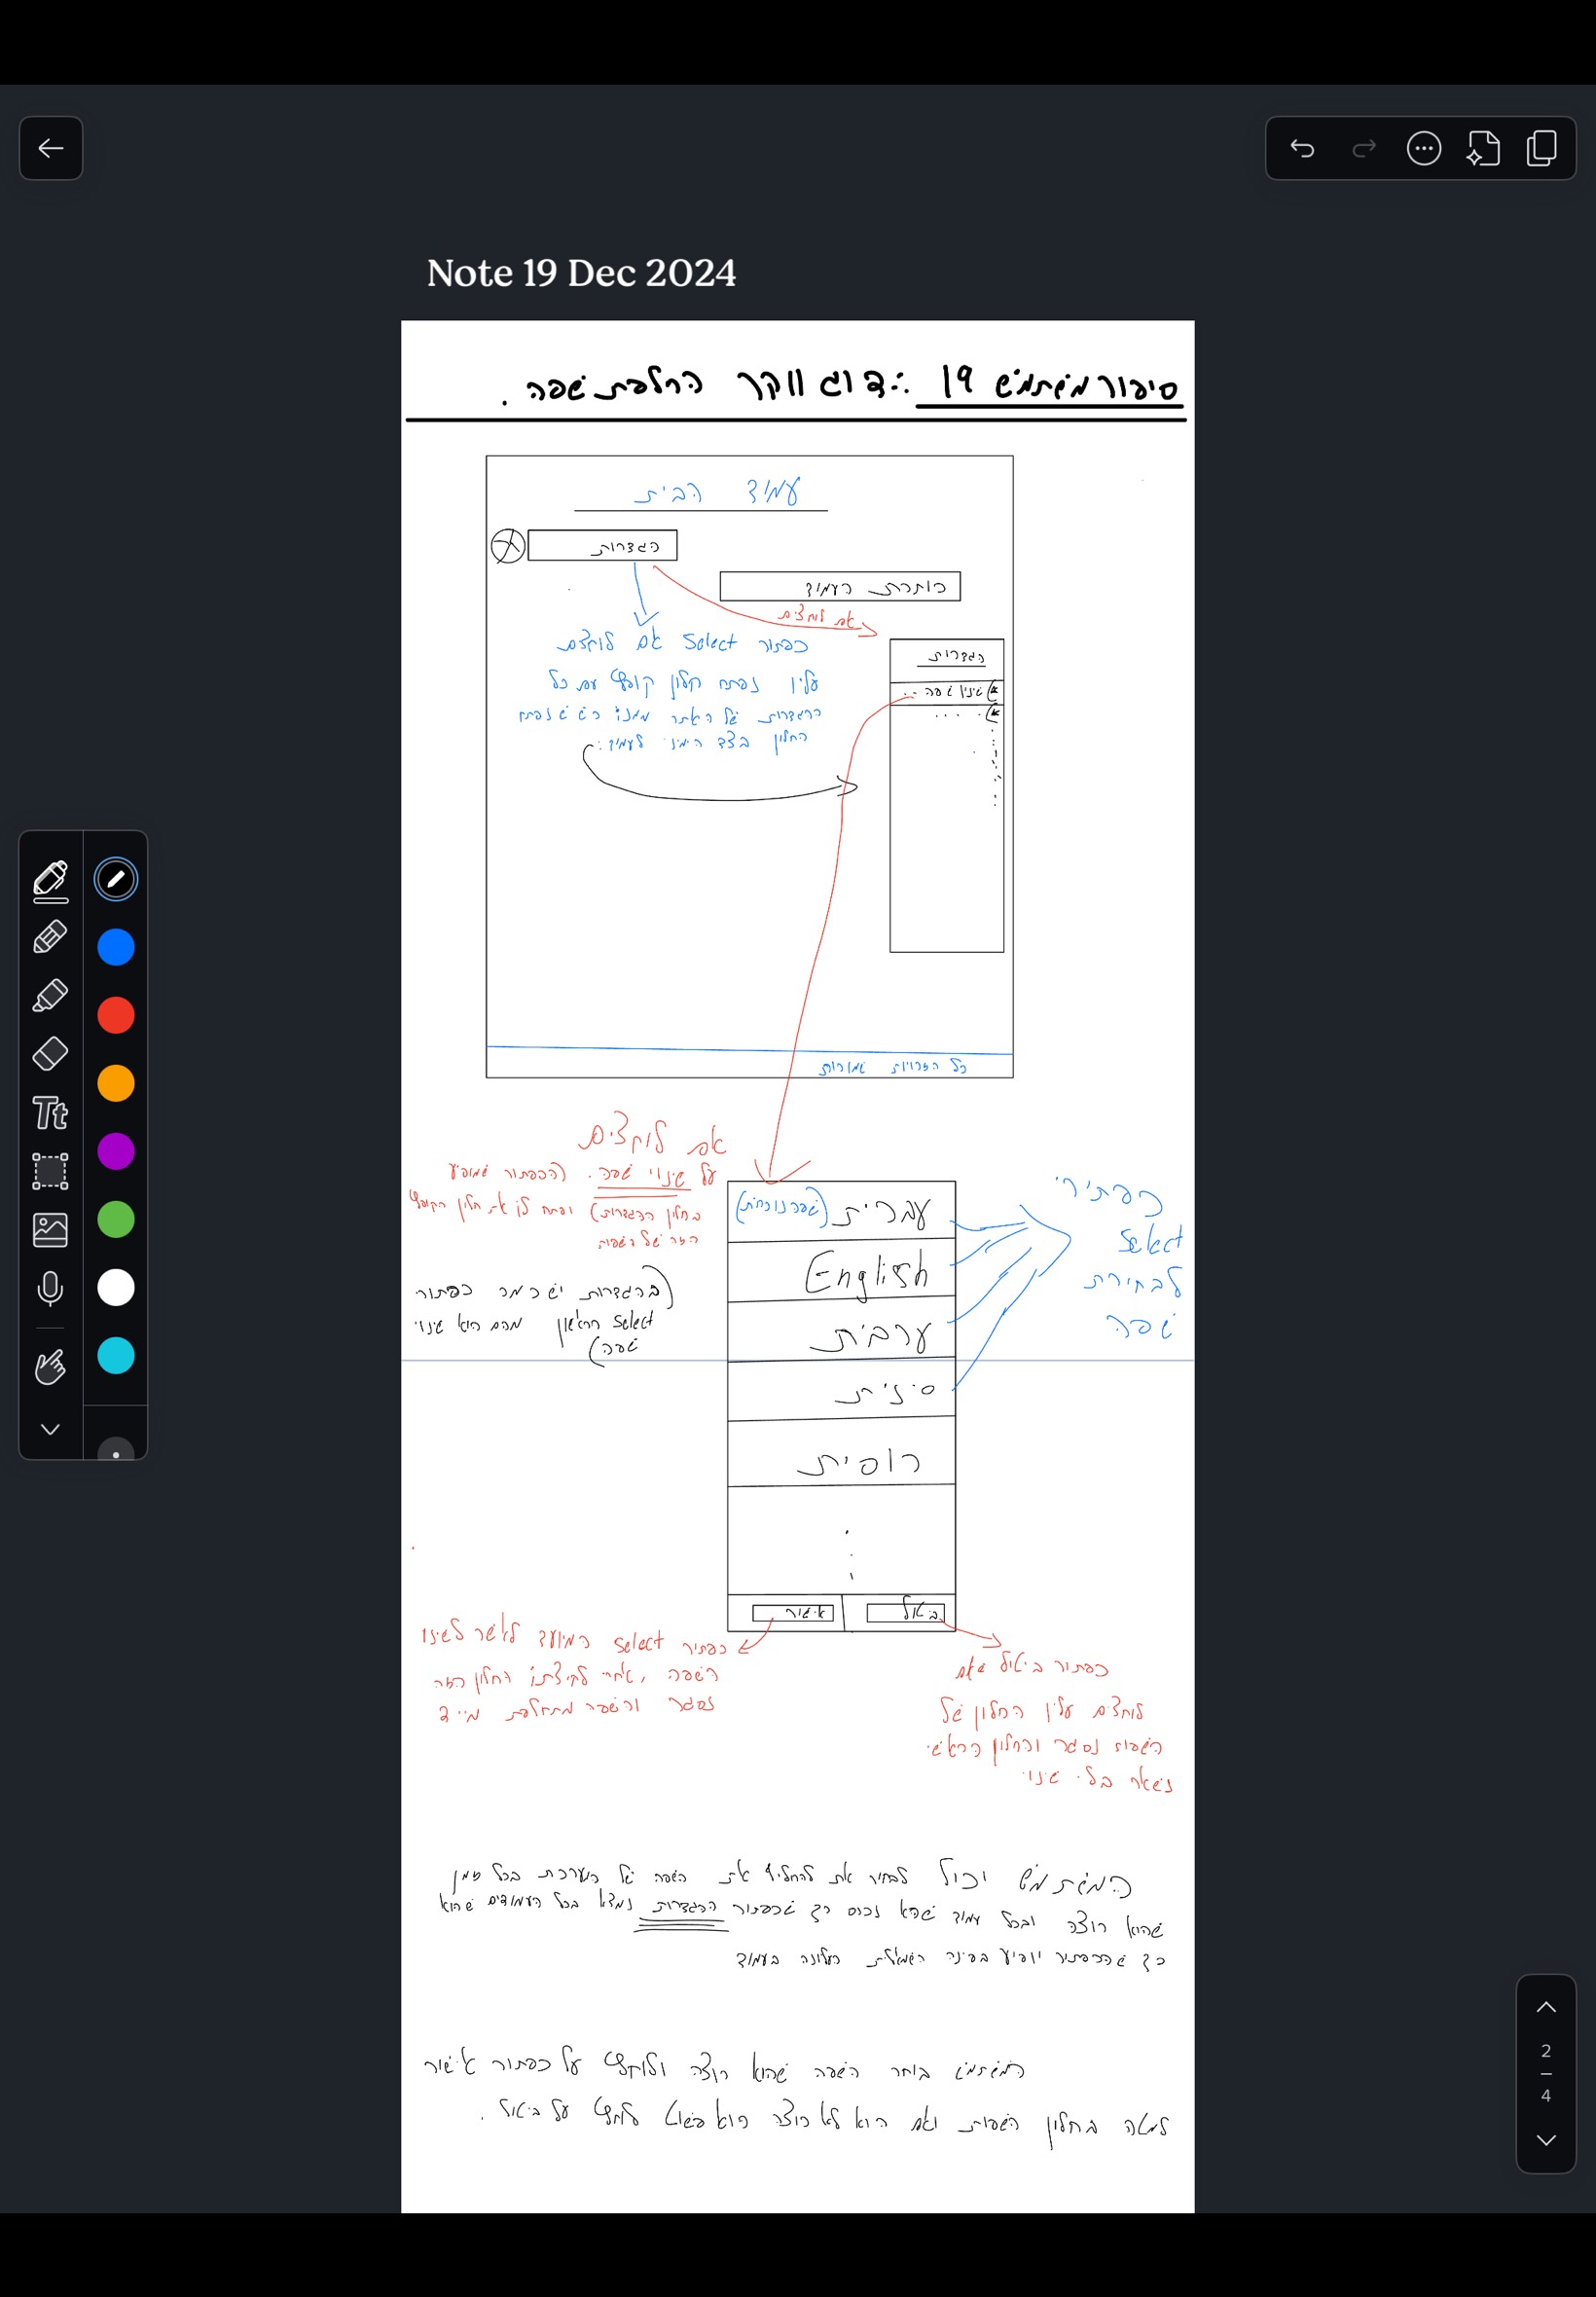 Note 19 Dec 2024
סיפור משתמש 19 : דוג ווקר החלפת שפה .
עמוד הבית
הגדרות
כותרת העמוד
אם לוחצים
כפתור Select אם לוחצים
עליו נפתח חלון קופץ עם כל
ההגדרות של האתר
החלון בצד הימני לעמוד :
הגדרות
א) שינוי שפה ..
א) . . . .
כל הזכויות שמורות
אם לוחצים
על שינוי שפה . (הכפתור שמופיע
בחלון ההגדרות) נפתח לך את חלון הקופץ
הזה של השפות
(בהגדרות יש כמה כפתור
Select הראשון מהם הוא שינוי
שפה)
עברית (שפה נוכחית)
English
ערבית
סינית
רוסית
ביטול
אישור
כפתורי
Select
לבחירת
שפה
כפתור Select המיועד לאשר לשינוי
השפה , אחרי לחיצתו החלון הזה
נסגר והשפה מתחלפת מייד
כפתור ביטול שאם
לוחצים עליו החלון של
השפות נסגר והחלון הראשי
נשאר בלי שינוי
המשתמש יכול לבחור את להחליף את השפה של המערכת בכל זמן
שהוא רוצה ובכל עמוד שהוא נכנס כך שכפתור ההגדרות נמצא בכל העמודים שהוא
כך שהכפתור יופיע בפינה השמאלית העליונה בעמוד
המשתמש בוחר השפה שהוא רוצה ולוחץ על כפתור אישור
למטה בחלון השפות ואם הוא לא רוצה הוא פשוט לוחץ על ביטול .
2
4